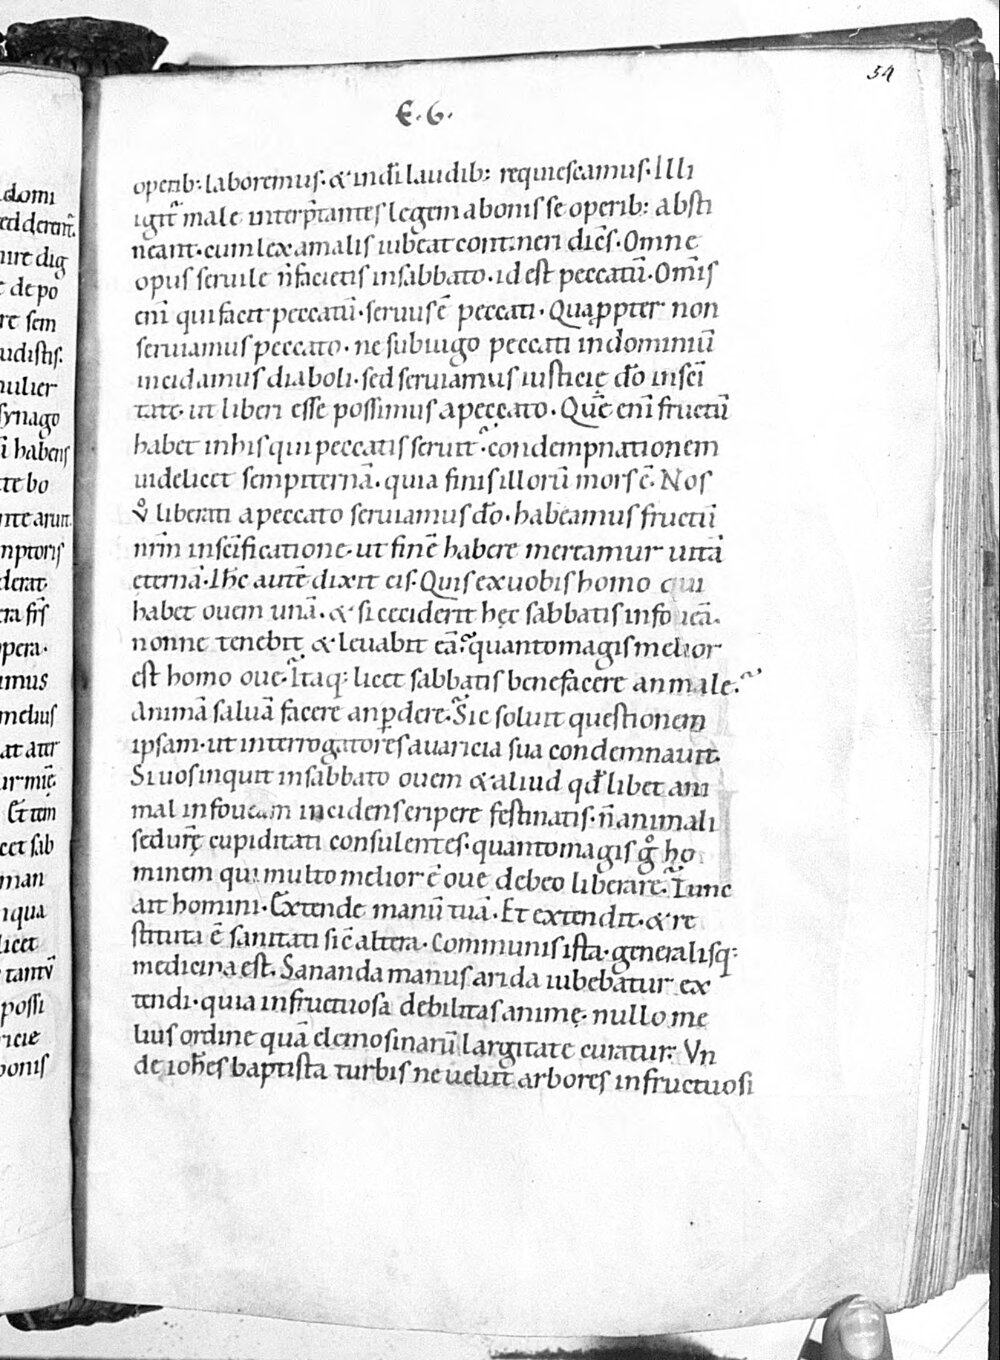 54
E. G.
domi
redderent̃.
nire dig
t depo
re sem
udistis.
mulier
synago
ĩ habens
te bo
nte aruit.
mptoris
derat
era frs̃
opera.
imus
melius
at atir
ir miẽ
Et tem
cet sab
man
nqua
licet
tantũ
possi
ricie
bonis
operib: laboremus. & indi̅ laudib: requiescamus. Illi
igit̃ male interp̃tantes legem abonis se operib: absti
neant. cum lex amalis iubeat contineri dicẽs. Omne
opus seruile n̅ facietis insabbato. id est peccatũ. Om̅is
eni̅ qui facit peccatũ. seruus ẽ peccati. Quap̱pter non
seruiamus peccato. ne subiugo peccati indominiũ
incidamus diaboli. sed seruiamus iusticię do̅ insci̅
tate. ut liberi esse possimus apeccato. Quẽ eni̅ fructũ
habet inhis qui peccatis seruit? condempnationem
uidelicet sempiternã. quia finis illorũ mors ẽ. Nos
v̊ liberati apeccato seruiamus do̅. habeamus fructũ
nr̅m insci̅ficatione. ut finẽ habere mereamur uitã
eternã. Ihc̅ autẽ dixit eis. Quis exuobis homo qui
habet ouem unã. & si ceciderit hęc sabbatis infoueã.
nonne tenebit & leuabit eã? quantomagis melior
est homo oue? Itaq: licet sabbatis benefacere an male?
Animã saluã facere anp̱dere? Sic soluit questionem
ipsam. ut interrogatores auaricia sua condemnauit.
Si uos inquit insabbato ouem & aliud qd̅ libet ani
mal infoueam incidens eripere festinatis. n̅ animali
sedur̃ę cupiditati consulentes. quantomagis g̊ ho
minem qui multo melior ẽ oue debeo liberare? Tunc
ait homini. Extende manũ tuã. Et extendit. & re
stituta ẽ sanitati sic̃ altera. Communis ista. generalisq:
medicina est. Sananda manus arida iubebatur ex
tendi. quia infructuosa debilitas animę. nullo me
lius ordine quã elemosinarũ largitate curatur. Vn
de ioh̅es baptista turbis ne uelut̃ arbores infructuosi